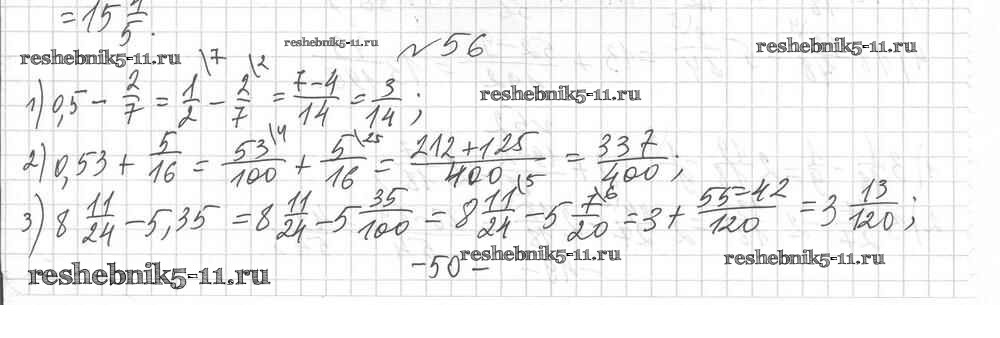 = 15 1/5.
reshebnik5-11.ru reshebnik5-11.ru №56 reshebnik5-11.ru
1) 0,5 - 2/7 = 1/2 \7 - 2/7 \2 = 7-4/14 = 3/14; reshebnik5-11.ru
2) 0,53 + 5/16 = 53/100 \4 + 5/16 \25 = 212+125/400 = 337/400;
3) 8 11/24 - 5,35 = 8 11/24 - 5 35/100 = 8 11/24 \5 - 5 7/20 \6 = 3 + 55-42/120 = 3 13/120;
reshebnik5-11.ru -50- reshebnik5-11.ru reshebnik5-11.ru